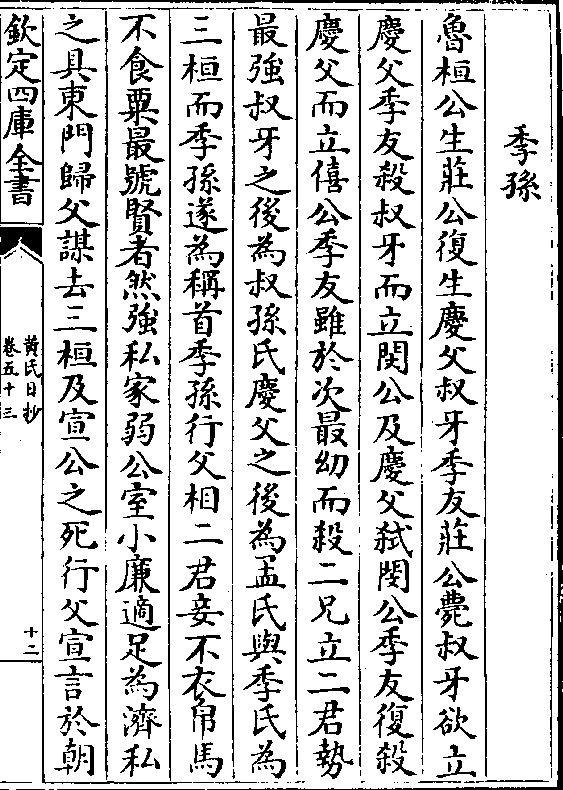 季孫
魯桓公生莊公復生慶父叔牙季友莊公薨叔牙欲立
慶父季友殺叔牙而立閔公及慶父弑閔公季友復殺
慶父而立僖公季友雖於次最幼而殺二兄立二君勢
最強叔牙之後為叔孫氏慶父之後為孟氏與季氏為
三桓而季孫遂為稱首季孫行父相二君妾不衣帛馬
不食粟最號賢者然強私家弱公室小廉適足為濟私
之具東門歸父謀去三桓及宣公之死行父宣言於朝
欽定四庫全書
黄氏日抄
卷五十三
十二